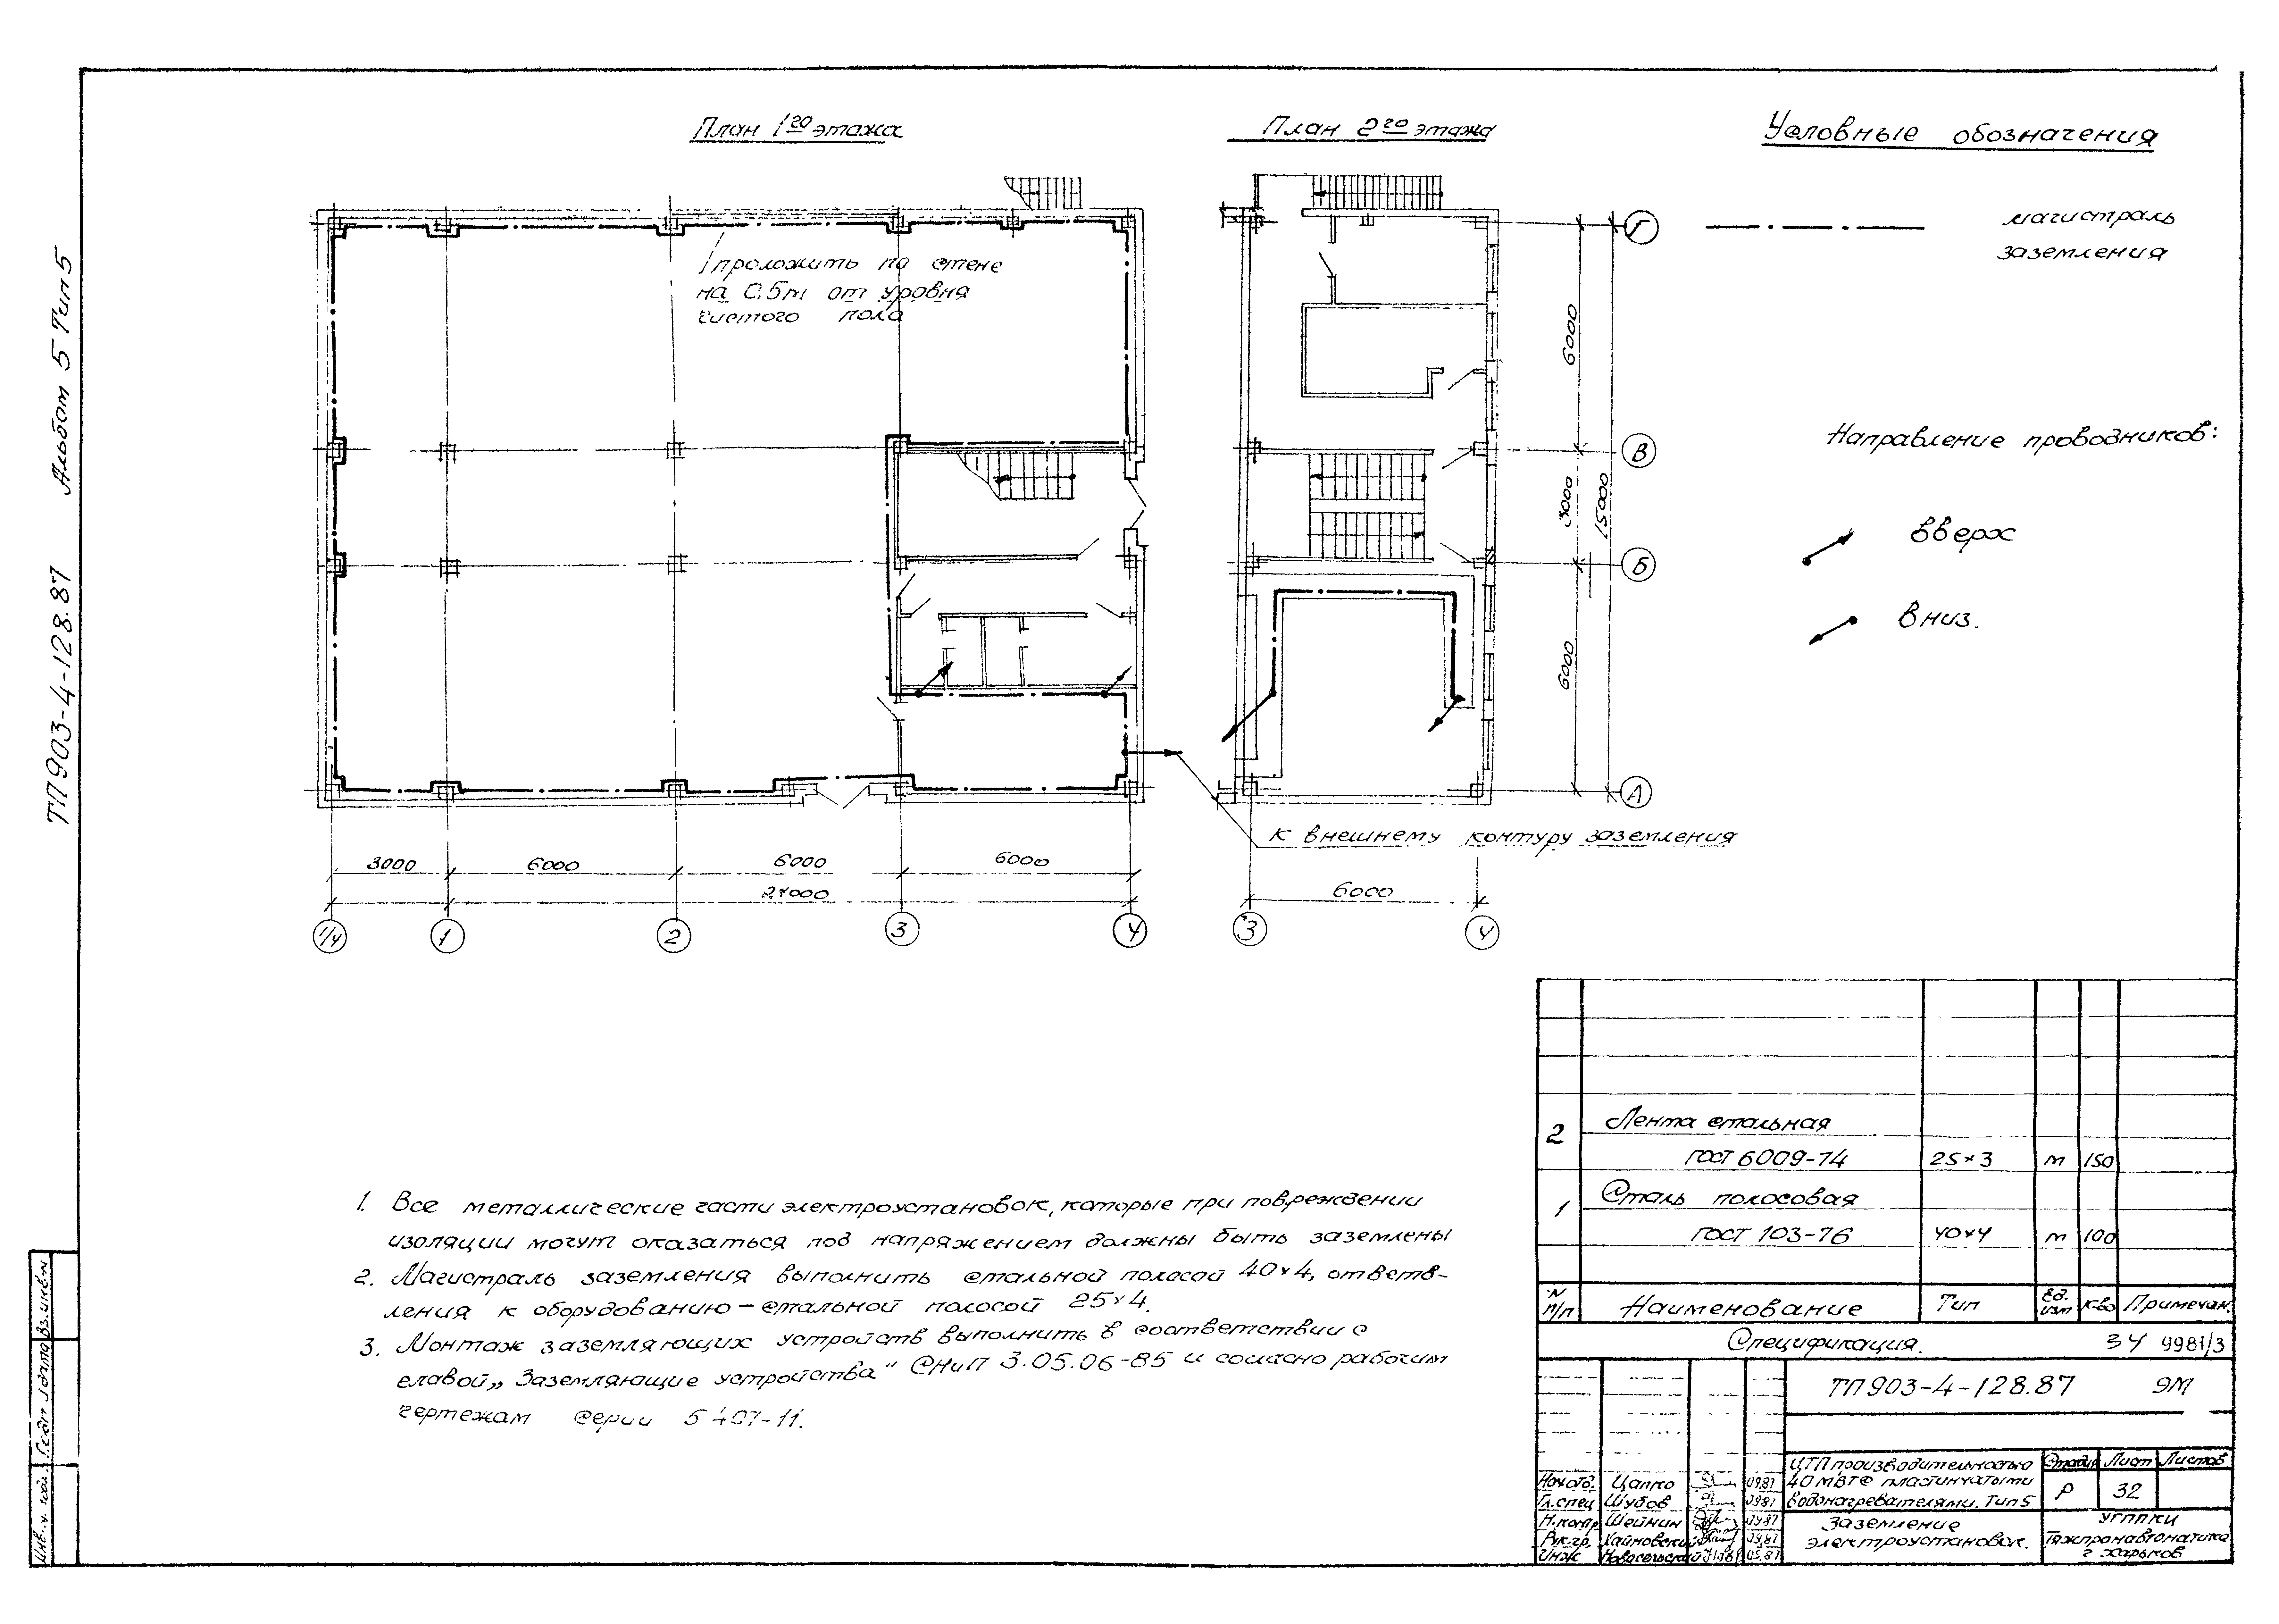 План 1го этажа
План 2го этажа
Условные обозначения
магистраль
заземления
проложить по стене
на 0,5м от уровня
чистого пола
Направление проводников:
вверх
вниз.
к внешнему контуру заземления
3000
6000
6000
6000
21000
1/4
1
2
3
4
6000
3
4
6000
3000
6000
15000
Г
В
Б
А
ТП903-4-128.87 Альбом 5 Тип 5
1. Все металлические части электроустановок, которые при повреждении
изоляции могут оказаться под напряжением должны быть заземлены
2. Магистраль заземления выполнить стальной полосой 40×4, ответв-
ления к оборудованию – стальной полосой 25×4.
3. Монтаж заземляющих устройств выполнить в соответствии с
главой „Заземляющие устройства" СНиП 3.05.06-85 и согласно рабочим
чертежам серии 5 407-11.
2 Лента стальная
ГОСТ 6009-74 25×3 м 150
1 Сталь полосовая
ГОСТ 103-76 40×4 м 100
N п/п Наименование Тип Ед. изм К-во Примечан.
Спецификация. 34 9981/3
ТП903-4-128.87 ЭМ
ЦТП производительностью
40 МВт с пластинчатыми
водонагревателями. Тип 5
Стадия Лист Листов
Р 32
Заземление
электроустановок.
УГППКИ
Тяжпромавтоматика
г Харьков
Нач.отд. Цапко 09.87
Гл.спец Шубов 09.87
Н.контр Шейнин 09.87
Рук.гр. Хайновский 09.87
Инж Новосельский 05.87
Инв. N подл. Подп. и дата Вз. инв. N